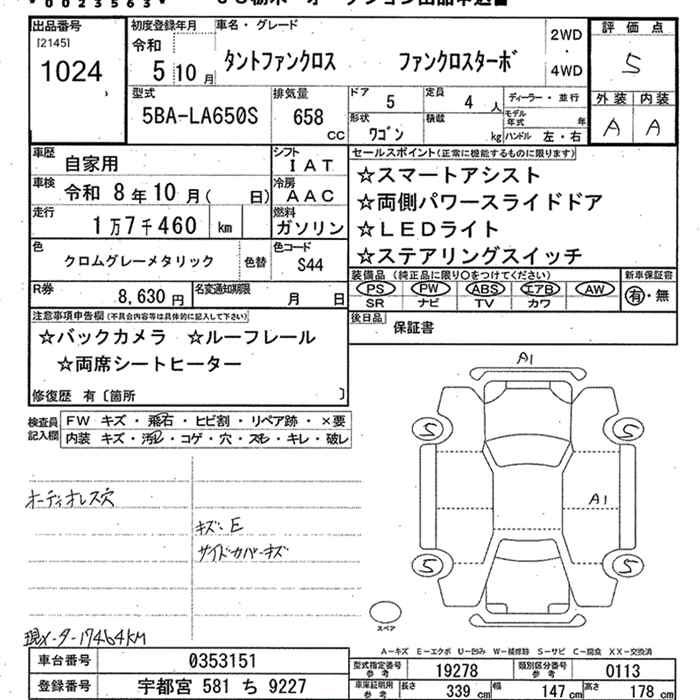 0023563
出品番号
[2145]
1024
初度登録年月
令和
5 10 月
車名・グレード
タントファンクロス ファンクロスターボ
2WD
・
4WD
評価点
5
外装 内装
A A
型式
5BA-LA650S
排気量
658
CC
ドア
5
定員
4 人
形状
ワゴン
積載
kg
ディーラー・並行
モデル年式 年
ハンドル 左・右
車歴
自家用
シフト
IAT
車検
令和 8 年 10 月 ( 日)
冷房
AAC
走行
1 万 7 千 460 km
燃料
ガソリン
色
クロムグレーメタリック
色替
色コード
S44
R券
8,630 円
名変通知期限
月 日
セールスポイント(正常に機能するものに限ります)
☆スマートアシスト
☆両側パワースライドドア
☆LEDライト
☆ステアリングスイッチ
装備品 (純正品に限り○をつけてください)
PS PW ABS エアB AW
SR ナビ TV カワ
新車保証書
有・無
後日品
保証書
注意事項申告欄(不具合内容等は具体的に記入して下さい)
☆バックカメラ ☆ルーフレール
☆両席シートヒーター
修復歴 有〔箇所 〕
検査員
記入欄
FW キズ・飛石・ヒビ割・リペア跡・×要
内装 キズ・汚レ・コゲ・穴・スレ・キレ・破レ
オーディオレス穴
キズ・E
サイドカバーキズ
現メーター17464KM
A1
5 5
A1
5 5
スペア
A-キズ E-エクボ U-凹み W-補修跡 S-サビ C-腐食 XX-交換済
車台番号
0353151
登録番号
宇都宮 581 ち 9227
型式指定番号
参考
19278
類別区分番号
参考
0113
車庫証明用
参考
長さ
339 cm
幅
147 cm
高さ
178 cm